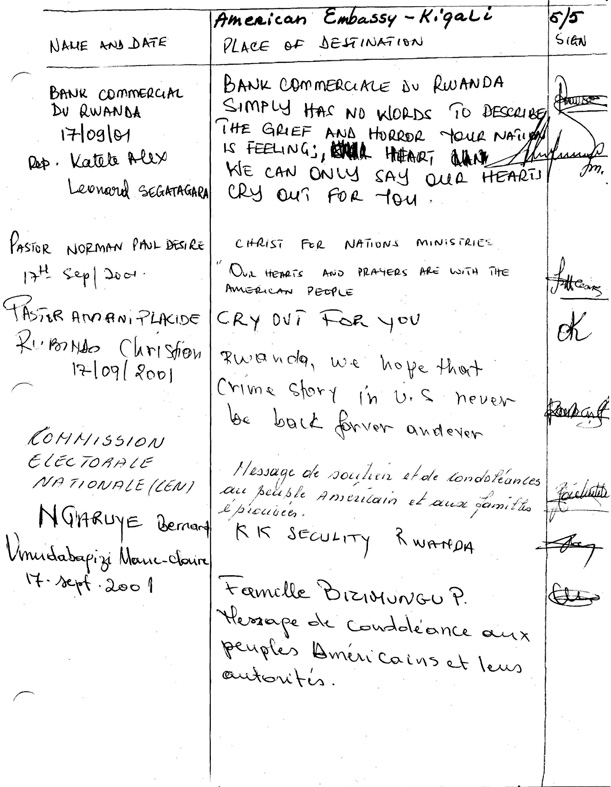 American Embassy - Kigali 5/5
NAME AND DATE PLACE OF DESTINATION SIGN
BANK COMMERCIAL
DU RWANDA
17/09/01
Rep. Katete Alex
Leonard SEGATAGARA
BANK COMMERCIALE DU RWANDA
SIMPLY HAS NO WORDS TO DESCRIBE
THE GRIEF AND HORROR YOUR NATION
IS FEELING; HEART
WE CAN ONLY SAY OUR HEARTS
CRY OUT FOR YOU.
PASTOR NORMAN PAUL DESIRE
17th Sep/2001.
CHRIST FOR NATIONS MINISTRIES
"OUR HEARTS AND PRAYERS ARE WITH THE
AMERICAN PEOPLE
PASTER AMANI PLACIDE
CRY OUT FOR YOU
OK
Christian
17/09/2001
Rwanda, we hope that
Crime story in U.S never
be back forver andever
KOMMISSION
ELECTORALE
NATIONALE (CEN)
Message de soutien et de condoléances
au peuple Américain et aux familles
éprouvées.
NGARUYE Bernard
KK SECULITY RWANDA
Umudabagizi Marie-Claire
17-sept.2001
Famille BIZIMUNGU P.
Message de conddéance aux
peuples Américains et leus
autorités.